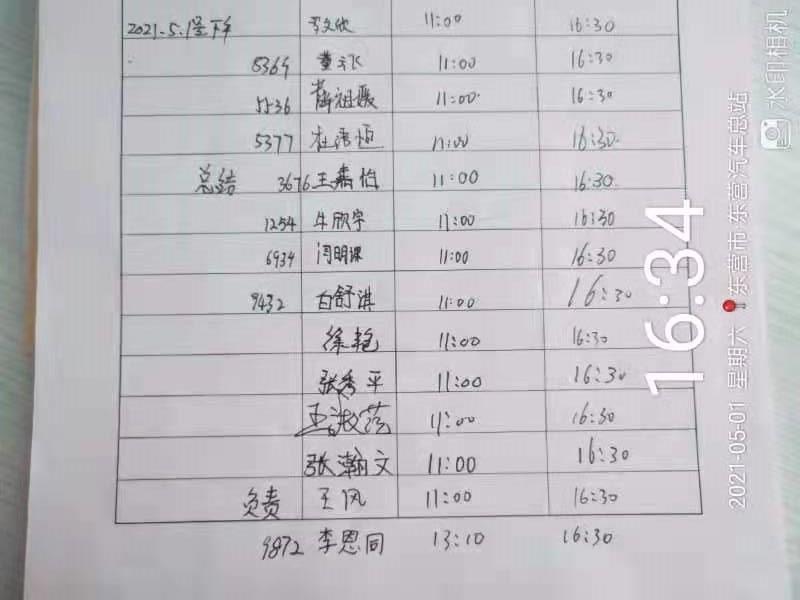 2021.5.1 下午 11:00 16:30
5364 董飞 11:00 16:30
5536 薛祖媛 11:00 16:30
5377 杜浩恒 11:00 16:30
总结 3676 王嘉怡 11:00 16:30
1254 牛欣宇 11:00 16:30
6934 闫明课 11:00 16:30
9432 白舒淇 11:00 16:30
徐艳 11:00 16:30
张秀平 11:00 16:30
王淑 11:00 16:30
张瀚文 11:00 16:30
负责 王风 11:00 16:30
9872 李恩同 13:10 16:30
16:34
2021-05-01 星期六 东营市·东营汽车总站
水印相机